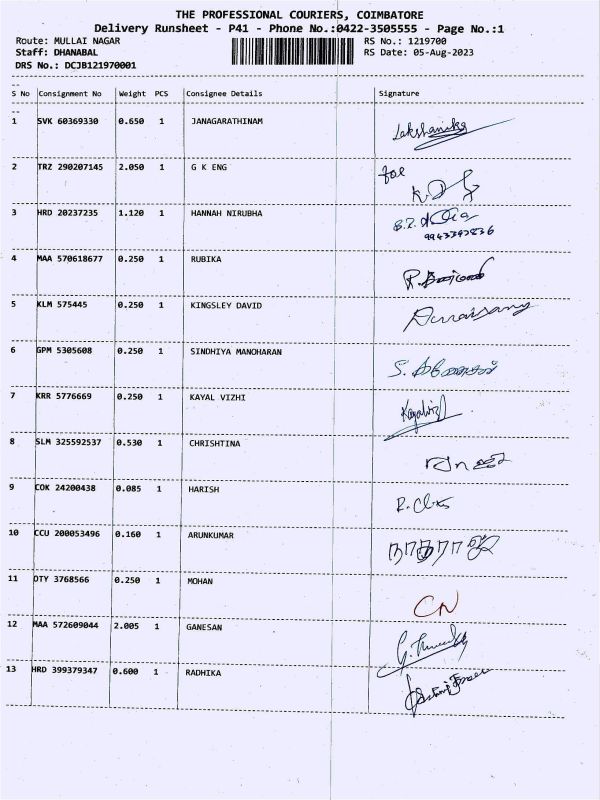 THE PROFESSIONAL COURIERS, COIMBATORE
Delivery Runsheet - P41 - Phone No.:0422-3505555 - Page No.:1
Route: MULLAI NAGAR RS No.: 1219700
Staff: DHANABAL RS Date: 05-Aug-2023
DRS No.: DCJB121970001
--
S No Consignment No Weight PCS Consignee Details Signature
--
1 SVK 60369330 0.650 1 JANAGARATHINAM
2 TRZ 290207145 2.050 1 G K ENG for
3 HRD 20237235 1.120 1 HANNAH NIRUBHA
9943393836
4 MAA 570618677 0.250 1 RUBIKA
5 KLM 575445 0.250 1 KINGSLEY DAVID
6 GPM 5305608 0.250 1 SINDHIYA MANOHARAN
7 KRR 5776669 0.250 1 KAYAL VIZHI
8 SLM 325592537 0.530 1 CHRISHTINA
9 COK 24200438 0.085 1 HARISH
10 CCU 200053496 0.160 1 ARUNKUMAR
11 OTY 3768566 0.250 1 MOHAN CN
12 MAA 572609044 2.005 1 GANESAN
13 HRD 399379347 0.600 1 RADHIKA